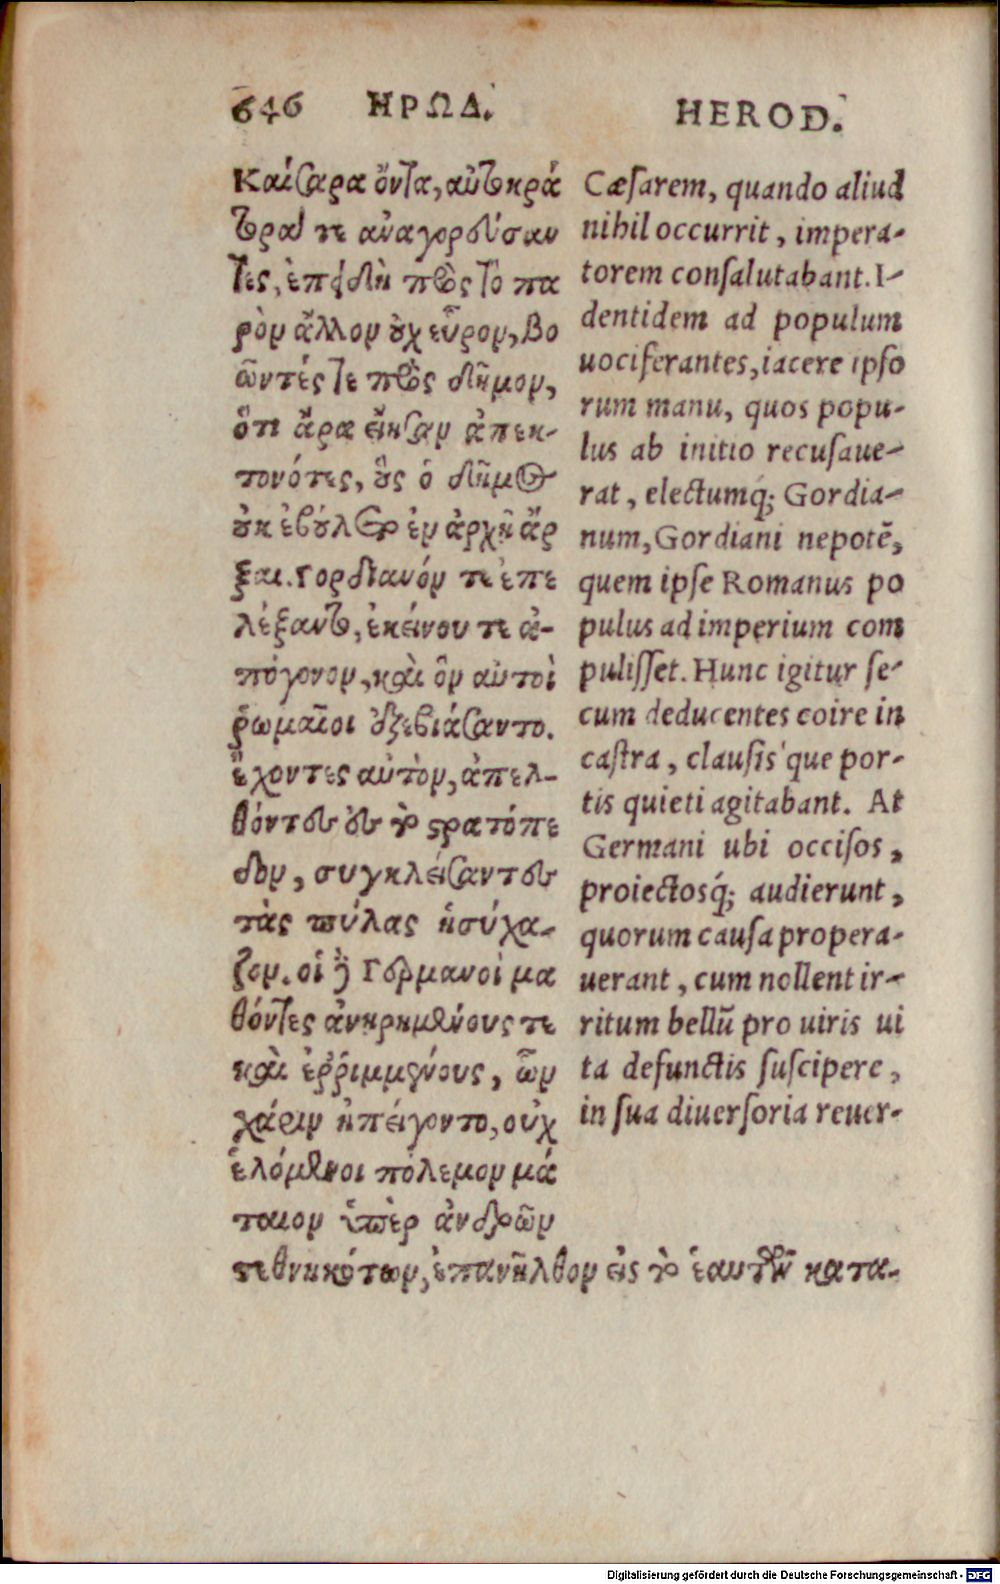 646 ΗΡΩΔ. HEROD.
Καίσαρα ὄντα, αὐτοκρά
τορα τε ἀναγορεύσαν
τες, ἐπειδὴ πρὸς τὸ πα
ρὸν ἄλλον οὐχ εὗρον, βο
ῶντές τε πρὸς δῆμον,
ὅτι ἄρα εἴησαν ἀπεκ-
τονότες, οὓς ὁ δῆμος
οὐκ ἐβούλετο ἐν ἀρχῆ ἄρ
ξαι. Γορδιανόν τε ἐπε
λέξαντο, ἐκείνου τε ἀ-
πόγονον, καὶ ὃν αὐτοὶ
ῥωμαῖοι ἐξεβιάσαντο.
ἔχοντες αὐτὸν, ἀπελ-
θόντες εἰς τὸ στρατόπε
δον, συγκλείσαντες
τὰς πύλας ἡσύχα-
ζον. οἱ δὲ Γερμανοὶ μα
θόντες ἀνῃρημένους τε
καὶ ἐῤῥιμμένους, ὧν
χάριν ἠπείγοντο, οὐχ
ἑλόμενοι πόλεμον μά
ταιον ὑπὲρ ἀνδρῶν
τεθνηκότων, ἐπανῆλθον εἰς τὸ ἑαυτῶν κατα-
Cæſarem, quando aliud
nihil occurrit, impera-
torem conſalutabant. I-
dentidem ad populum
uociferantes, iacere ipſo
rum manu, quos popu-
lus ab initio recuſaue-
rat, electumq́; Gordia-
num, Gordiani nepotē,
quem ipſe Romanus po
pulus ad imperium com
puliſſet. Hunc igitur ſe-
cum deducentes coire in
caſtra, clauſis'que por-
tis quieti agitabant. At
Germani ubi occiſos,
proiectosq́; audierunt,
quorum cauſa propera-
uerant, cum nollent ir-
ritum bellū pro uiris ui
ta defunctis ſuſcipere,
in ſua diuerſoria reuer-
Digitalisierung gefördert durch die Deutsche Forschungsgemeinschaft - DFG